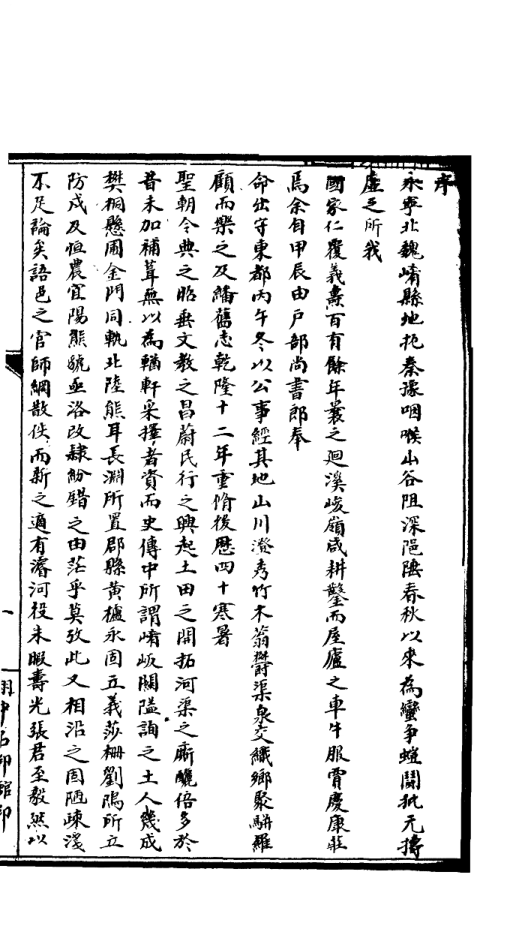 序
永寧北魏崤縣地扼秦豫咽喉山谷阻深阨陋春秋以來為蠻爭螘鬬批亢擣
虛之所我
國家仁覆義燾百有餘年曩之迴溪峻嶺咸耕鑿而屋廬之車牛服賈慶康莊
焉余自甲辰由戶部尚書郎奉
命出守東都丙午冬以公事經其地山川澄秀竹木蓊鬱渠泉交織鄉聚駢羅
顧而樂之及繙舊志乾隆十二年重脩後歷四十寒暑
聖朝令典之昭垂文教之昌蔚民行之興起土田之開拓河渠之廝釃倍多於
昔未加補葺無以為輶軒采擇者資而史傳中所謂崤坂關隘詢之土人幾成
樊桐懸圃金門同軌北陸熊耳長淵所置郡縣黃櫨永固立義莎柵劉隝所立
防戍及恒農宜陽熊虢亟洛改隸紛錯之由茫乎莫攷此又相沿之固陋疎淺
不足論矣語邑之官師網散佚而新之適有濬河役未暇壽光張君至毅然以
一
中石印館印